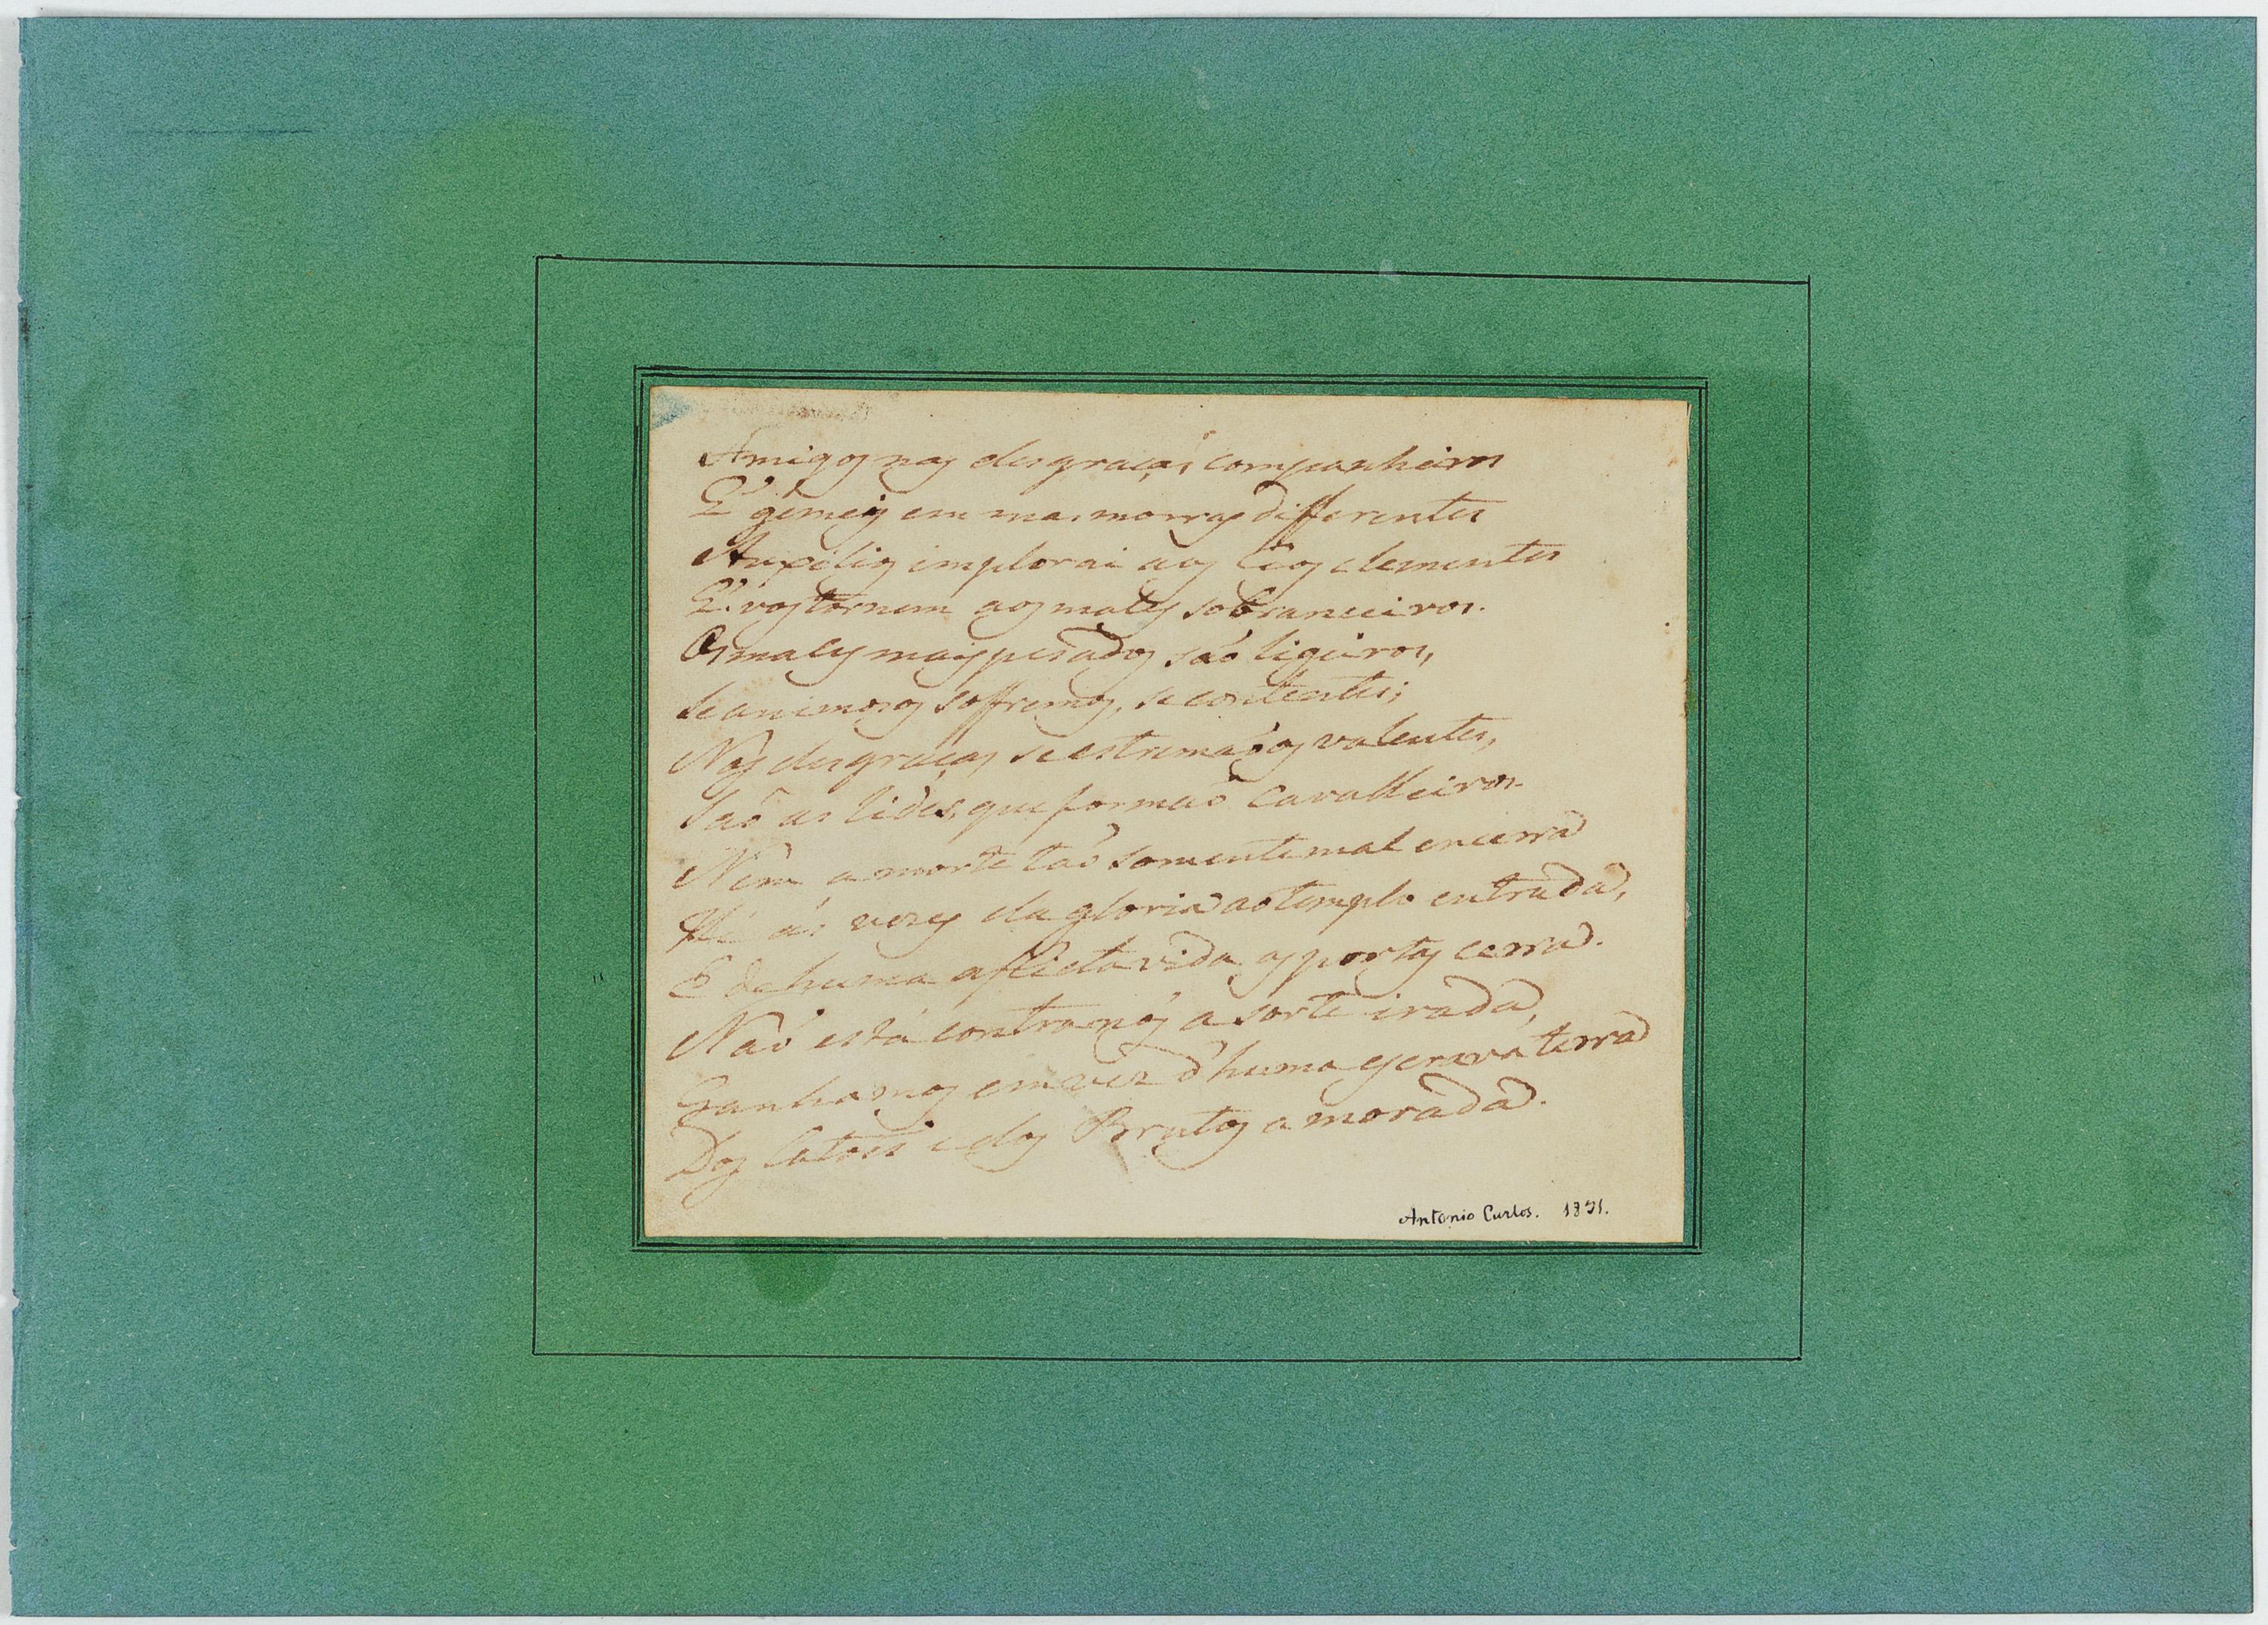 Amigos nas desgraças companheiros
Q' gemeis em masmorras differentes
Auxilios implorai aos Ceos clementes
Q' vos tornem aos males sobranceiros.
Os males mais pesados são ligeiros,
Se animosos soffremos, se contentes;
Nas desgraças se estremaõ os valentes,
Saõ as lides, que formaõ Cavalleiros.
Nem a morte taõ somente mal encerra
He ás vezes da gloria ao templo entrada,
E de huma aflicta vida as portas cerra.
Naõ está contra nós a sorte irada,
Ganhamos em vez d'huma escrava terra
Dos Catões e dos Brutos a morada.
Antonio Carlos. 1821.